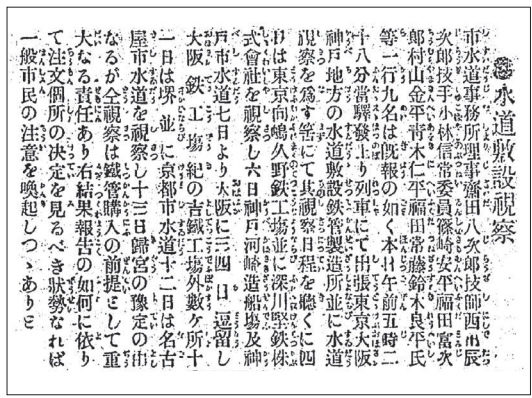 水道敷設視察
市水道事務所理事齋田八次郎技師西出辰
次郎技手小林信常委員篠崎安平福田富次
郎村山金平靑木仁平福田常藤鈴木良平氏
等一行九名は旣報の如く本日午前五時二
十八分當驛發上り列車にて出張東京大阪
神戶地方の水道敷設鐵管製造所並に水道
視察を爲す筈にて其視察日程を聽くに四
日は東京向嶋久野鐵工塲並に深川堅鐵株
式會社を視察し六日神戶河崎造船塲及神
戶市水道七日より大阪に三四日間逗留し
大阪鉄工塲紀の吉鐵工塲外數ケ所十
一日は堺並に京都市水道十二日は名古
屋市水道を視察し十三日歸宮の豫定の由
なるが仝視察は鐵管購入の前提として重
大なる責任あり右結果報告の如何に依り
て注文個所の決定を見るべき狀勢なれば
一般市民の注意を喚起しつゝありと